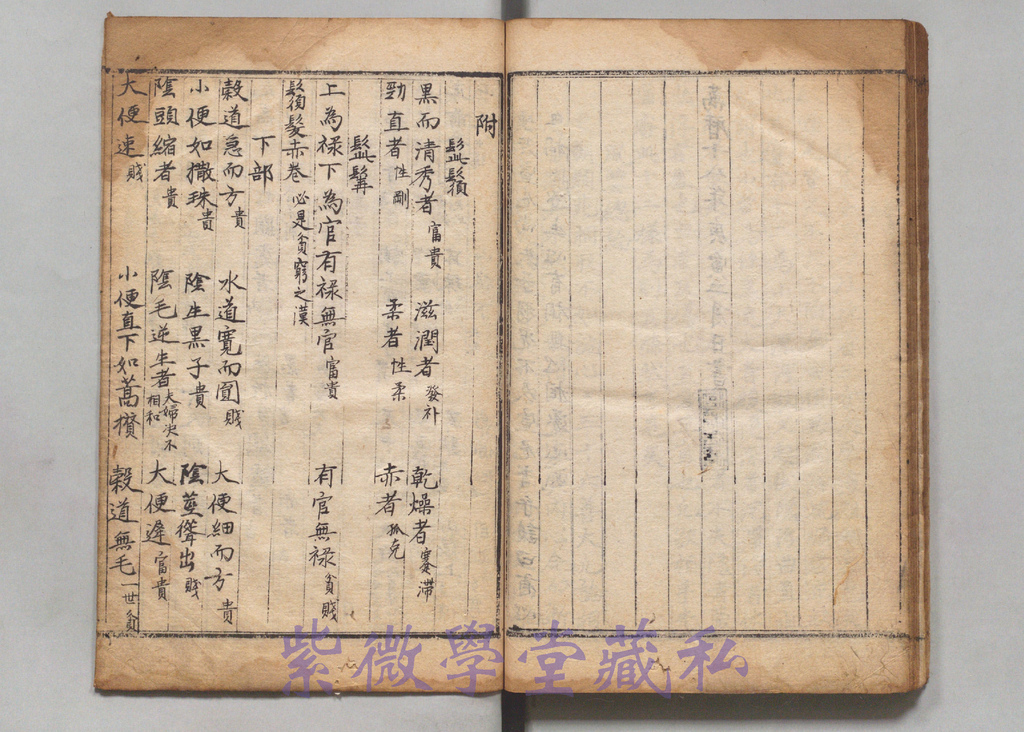 附
髭鬚
黑而清秀者富貴 滋潤者發补 乾燥者蹇滞
勁直者性剛 柔者性柔 赤者孤克
髭髯
上為禄下為官有禄無官富貴 有官無禄貧賤
鬚髮赤卷必是貧窮之漢
下部
榖道急而方貴 水道寬而圓賤 大便細而方貴
小便如撒珠貴 陰生黑子貴 陰莖聳出賤
陰頭縮者貴 陰毛逆生者夫婦决不相和 大便遲富貴
大便速賤 小便直下如蒿攢 榖道無毛一世貧
紫微學堂藏私